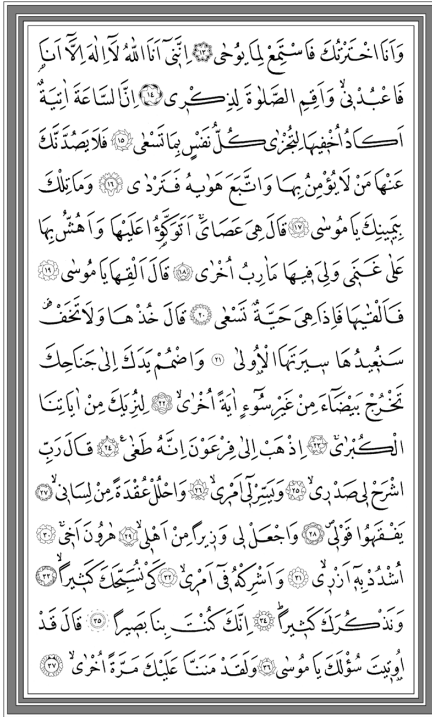 وَاَنَا اخْتَرْتُكَ فَاسْتَمِعْ لِمَا يُوحٰى ﴿١٣﴾ اِنَّنٖى اَنَا اللّٰهُ لَٓا اِلٰهَ اِلَّٓا اَنَا۬
فَاعْبُدْنٖى وَاَقِمِ الصَّلٰوةَ لِذِكْرٖى ﴿١٤﴾ اِنَّ السَّاعَةَ اٰتِيَةٌ
اَكَادُ اُخْفٖيهَا لِتُجْزٰى كُلُّ نَفْسٍ بِمَا تَسْعٰى ﴿١٥﴾ فَلَا يَصُدَّنَّكَ
عَنْهَا مَنْ لَا يُؤْمِنُ بِهَا وَاتَّبَعَ هَوٰيهُ فَتَرْدٰى ﴿١٦﴾ وَمَا تِلْكَ
بِيَمٖينِكَ يَا مُوسٰى ﴿١٧﴾ قَالَ هِىَ عَصَاىَۚ اَتَوَكَّؤُ۬ا عَلَيْهَا وَاَهُشُّ بِهَا
عَلٰى غَنَمٖى وَلِىَ فٖيهَا مَاٰرِبُ اُخْرٰى ﴿١٨﴾ قَالَ اَلْقِهَا يَا مُوسٰى ﴿١٩﴾
فَاَلْقٰيهَا فَاِذَا هِىَ حَيَّةٌ تَسْعٰى ﴿٢٠﴾ قَالَ خُذْهَا وَلَا تَخَفْ۠
سَنُعٖيدُهَا سٖيرَتَهَا الْاُولٰى ﴿٢١﴾ وَاضْمُمْ يَدَكَ اِلٰى جَنَاحِكَ
تَخْرُجْ بَيْضَٓاءَ مِنْ غَيْرِ سُٓوءٍ اٰيَةً اُخْرٰىۙ ﴿٢٢﴾ لِنُرِيَكَ مِنْ اٰيَاتِنَا
الْكُبْرٰىۚ ﴿٢٣﴾ اِذْهَبْ اِلٰى فِرْعَوْنَ اِنَّهُ طَغٰى۟ ﴿٢٤﴾ قَالَ رَبِّ
اشْرَحْ لٖى صَدْرٖىۙ ﴿٢٥﴾ وَيَسِّرْ لٖٓى اَمْرٖىۙ ﴿٢٦﴾ وَاحْلُلْ عُقْدَةً مِنْ لِسَانٖىۙ ﴿٢٧﴾
يَفْقَهُوا قَوْلٖىۖ ﴿٢٨﴾ وَاجْعَلْ لٖى وَزٖيرًا مِنْ اَهْلٖىۙ ﴿٢٩﴾ هٰرُونَ اَخٖىۙ ﴿٣٠﴾
اُشْدُدْ بِهٖٓ اَزْرٖىۙ ﴿٣١﴾ وَاَشْرِكْهُ فٖٓى اَمْرٖىۙ ﴿٣٢﴾ كَىْ نُسَبِّحَكَ كَثٖيرًاۙ ﴿٣٣﴾
وَنَذْكُرَكَ كَثٖيرًاۜ ﴿٣٤﴾ اِنَّكَ كُنْتَ بِنَا بَصٖيرًا ﴿٣٥﴾ قَالَ قَدْ
اُو۫تٖيتَ سُؤْلَكَ يَا مُوسٰى ﴿٣٦﴾ وَلَقَدْ مَنَنَّا عَلَيْكَ مَرَّةً اُخْرٰىۙ ﴿٣٧﴾